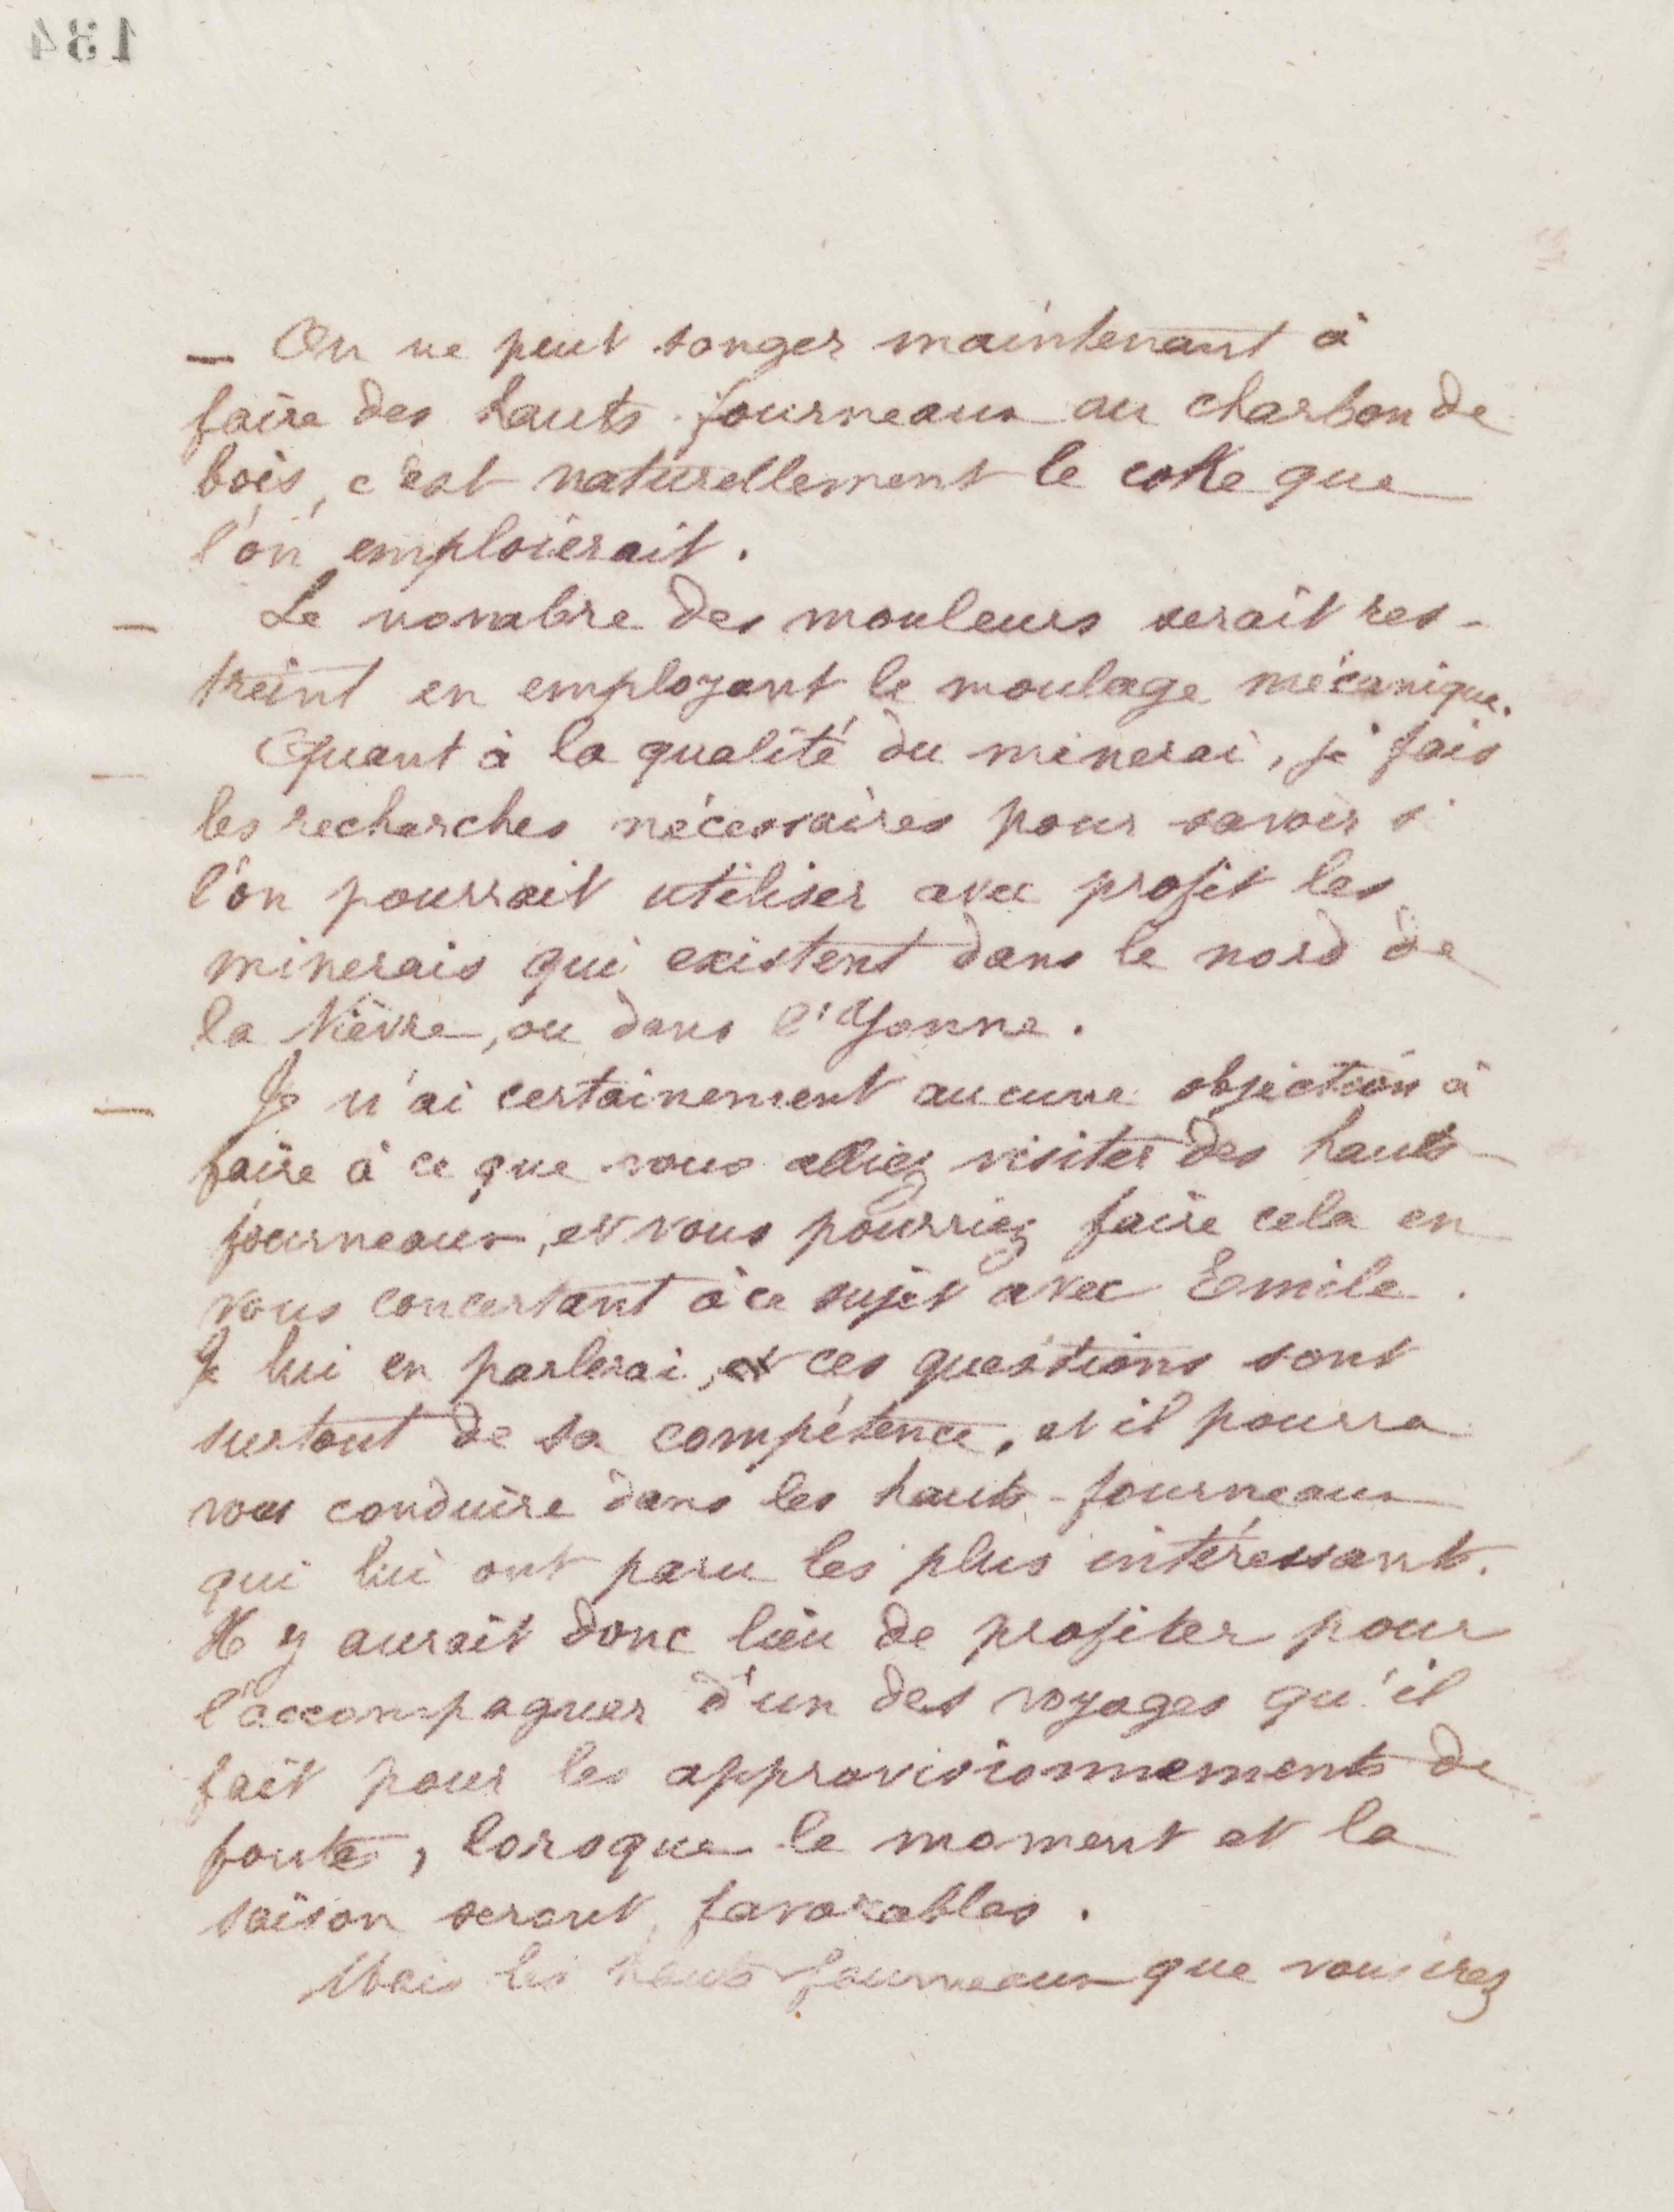 184
— On ne peut songer maintenant à
faire des hauts-fourneaux au charbon de
bois, c'est naturellement le coke que
l'on emploierait.
— Le nombre des mouleurs serait res-
treint en employant le moulage mécanique.
— Quant à la qualité du minerai, je fais
les recherches nécessaires pour savoir si
l'on pourrait utiliser avec profit les
minerais qui existent dans le nord de
la Nièvre, ou dans l'Yonne.
— Je n'ai certainement aucune objection à
faire à ce que vous alliez visiter des hauts-
fourneaux, et vous pourriez faire cela en
vous concertant à ce sujet avec Emile.
Je lui en parlerai, et ces questions sont
surtout de sa compétence, et il pourra
vous conduire dans les hauts-fourneaux
qui lui ont paru les plus intéressants.
Il y aurait donc lieu de profiter pour
l'accompagner d'un des voyages qu'il
fait pour les approvisionnements de
fonte, lorsque le moment et la
saison seront favorables.
Mais les hauts-fourneaux que vous irez